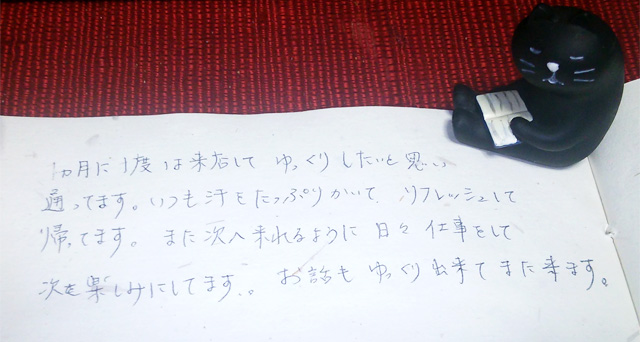 1ヵ月に1度は来店して ゆっくりしたいと思い
通ってます。いつも汗をたっぷりかいて、リフレッシュして
帰ってます。また次へ来れるように日々仕事をして
次を楽しみにしてます。お話もゆっくり出来てまた来ます。